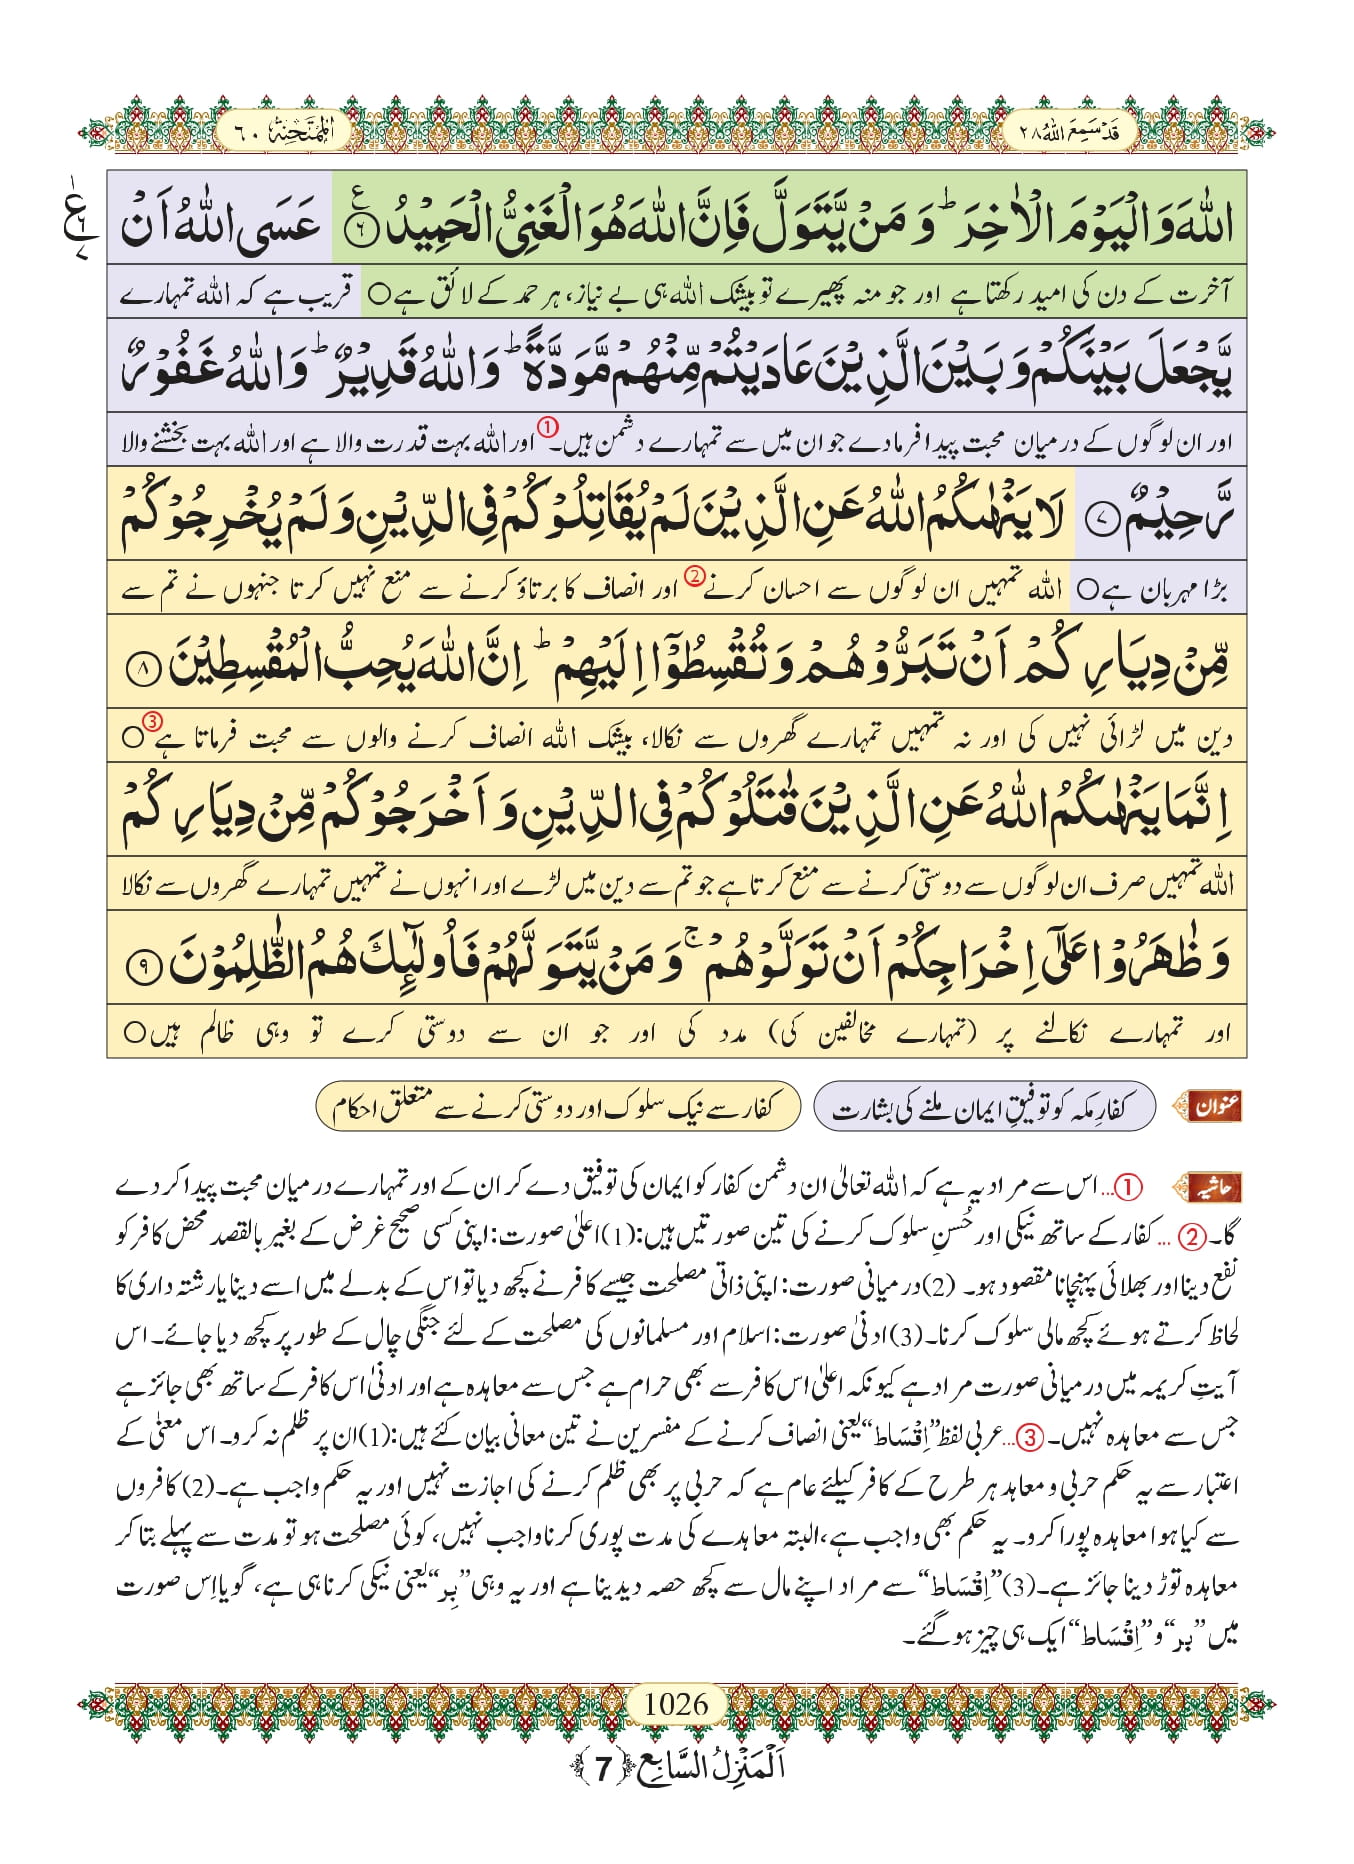 قَدْ سَمِعَ اللّٰهُ ٢٨
اَلْمُمْتَحِنَة ٦٠
اللّٰهَ وَالْیَوْمَ الْاٰخِرَ ؕ وَ مَنْ یَّتَوَلَّ فَاِنَّ اللّٰهَ هُوَ الْغَنِیُّ الْحَمِیْدُ ﴿۶﴾ عَسَى اللّٰهُ اَنْ
آخرت کے دن کی امید رکھتا ہے اور جو منہ پھیرے تو بیشک اللہ ہی بے نیاز، ہر حمد کے لائق ہے○ قریب ہے کہ اللہ تمہارے
یَّجْعَلَ بَیْنَكُمْ وَ بَیْنَ الَّذِیْنَ عَادَیْتُمْ مِّنْهُمْ مَّوَدَّةً ؕ وَ اللّٰهُ قَدِیْرٌ ؕ وَ اللّٰهُ غَفُوْرٌ
اور ان لوگوں کے درمیان محبت پیدا فرمادے جو ان میں سے تمہارے دشمن ہیں۔① اور اللہ بہت قدرت والا ہے اور اللہ بہت بخشنے والا
رَّحِیْمٌ ﴿۷﴾ لَا یَنْهٰىكُمُ اللّٰهُ عَنِ الَّذِیْنَ لَمْ یُقَاتِلُوْكُمْ فِی الدِّیْنِ وَ لَمْ یُخْرِجُوْكُمْ
بڑا مہربان ہے○ اللہ تمہیں ان لوگوں سے احسان کرنے② اور انصاف کا برتاؤ کرنے سے منع نہیں کرتا جنہوں نے تم سے
مِّنْ دِیَارِكُمْ اَنْ تَبَرُّوْهُمْ وَ تُقْسِطُوْۤا اِلَیْهِمْ ؕ اِنَّ اللّٰهَ یُحِبُّ الْمُقْسِطِیْنَ ﴿۸﴾
دین میں لڑائی نہیں کی اور نہ تمہیں تمہارے گھروں سے نکالا، بیشک اللہ انصاف کرنے والوں سے محبت فرماتا ہے③○
اِنَّمَا یَنْهٰىكُمُ اللّٰهُ عَنِ الَّذِیْنَ قٰتَلُوْكُمْ فِی الدِّیْنِ وَ اَخْرَجُوْكُمْ مِّنْ دِیَارِكُمْ
اللہ تمہیں صرف ان لوگوں سے دوستی کرنے سے منع کرتا ہے جو تم سے دین میں لڑے اور انہوں نے تمہیں تمہارے گھروں سے نکالا
وَ ظٰهَرُوْا عَلٰۤى اِخْرَاجِكُمْ اَنْ تَوَلَّوْهُمْ ۚ وَ مَنْ یَّتَوَلَّهُمْ فَاُولٰٓىٕكَ هُمُ الظّٰلِمُوْنَ ﴿۹﴾
اور تمہارے نکالنے پر (تمہارے مخالفین کی) مدد کی اور جو ان سے دوستی کرے تو وہی ظالم ہیں○
عنوان کفارِ مکہ کو توفیقِ ایمان ملنے کی بشارت کفار سے نیک سلوک اور دوستی کرنے سے متعلق احکام
حاشیہ ①... اس سے مراد یہ ہے کہ اللہ تعالیٰ ان دشمن کفار کو ایمان کی توفیق دے کر ان کے اور تمہارے درمیان محبت پیدا کردے
گا۔ ②... کفار کے ساتھ نیکی اور حُسنِ سلوک کرنے کی تین صورتیں ہیں:(1)اعلیٰ صورت: اپنی کسی صحیح غرض کے بغیر بالقصد محض کافر کو
نفع دینا اور بھلائی پہنچانا مقصود ہو۔ (2)درمیانی صورت: اپنی ذاتی مصلحت جیسے کافر نے کچھ دیا تو اس کے بدلے میں اسے دینا یا رشتہ داری کا
لحاظ کرتے ہوئے کچھ مالی سلوک کرنا۔(3)ادنیٰ صورت: اسلام اور مسلمانوں کی مصلحت کے لئے جنگی چال کے طور پر کچھ دیا جائے۔ اس
آیتِ کریمہ میں درمیانی صورت مراد ہے کیونکہ اعلیٰ اس کافر سے بھی حرام ہے جس سے معاہدہ ہے اور ادنیٰ اس کافر کے ساتھ بھی جائز ہے
جس سے معاہدہ نہیں۔ ③...عربی لفظ ”اِقْسَاط“ یعنی انصاف کرنے کے مفسرین نے تین معانی بیان کئے ہیں:(1)ان پر ظلم نہ کرو۔ اس معنٰی کے
اعتبار سے یہ حکم حربی و معاہد ہر طرح کے کافر کیلئے عام ہے کہ حربی پر بھی ظلم کرنے کی اجازت نہیں اور یہ حکم واجب ہے۔(2) کافروں
سے کیا ہوا معاہدہ پورا کرو۔ یہ حکم بھی واجب ہے، البتہ معاہدے کی مدت پوری کرنا واجب نہیں، کوئی مصلحت ہو تو مدت سے پہلے بتا کر
معاہدہ توڑ دینا جائز ہے۔(3)”اِقْسَاط“ سے مراد اپنے مال سے کچھ حصہ دیدینا ہے اور یہ وہی ”بِر“ یعنی نیکی کرنا ہی ہے، گویا اِس صورت
میں ”بر“ و ”اِقْسَاط“ ایک ہی چیز ہوگئے۔
1026
اَلْمَنْزِلُ السَّابِع ﴿7﴾